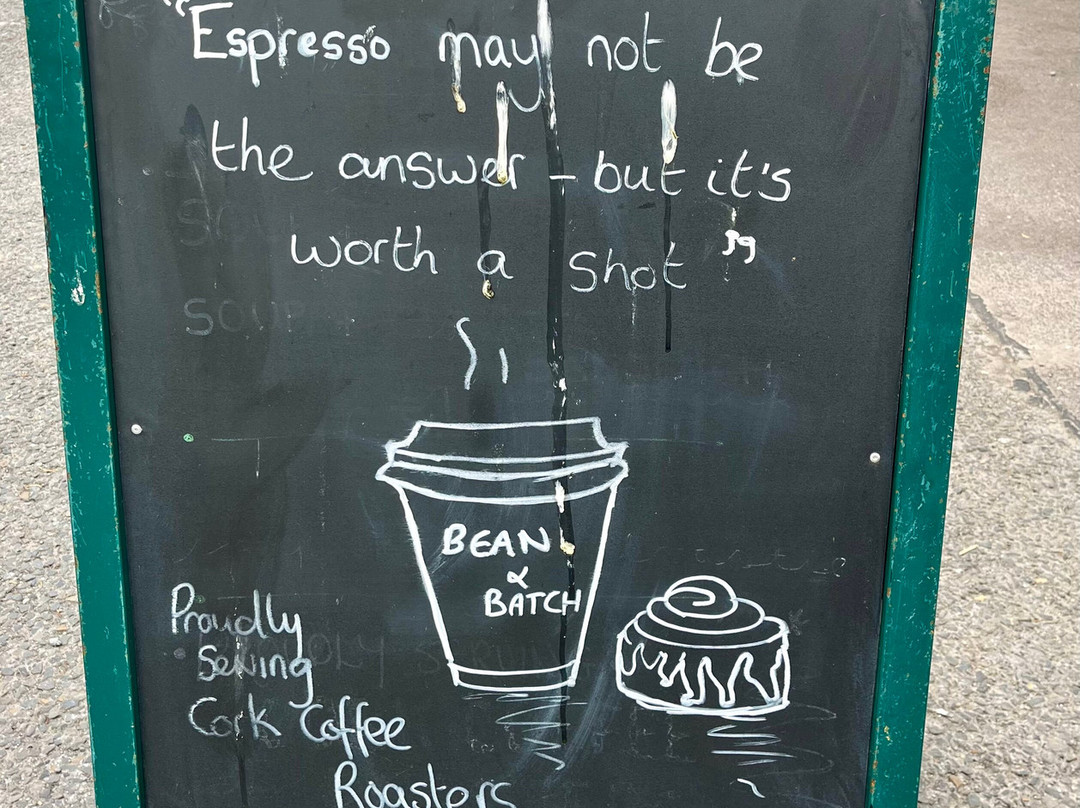 "Espresso may not be
the answer – but it's
worth a shot"
SOUP
BEAN
&
BATCH
Proudly
Serving
Cork Coffee
Roasters